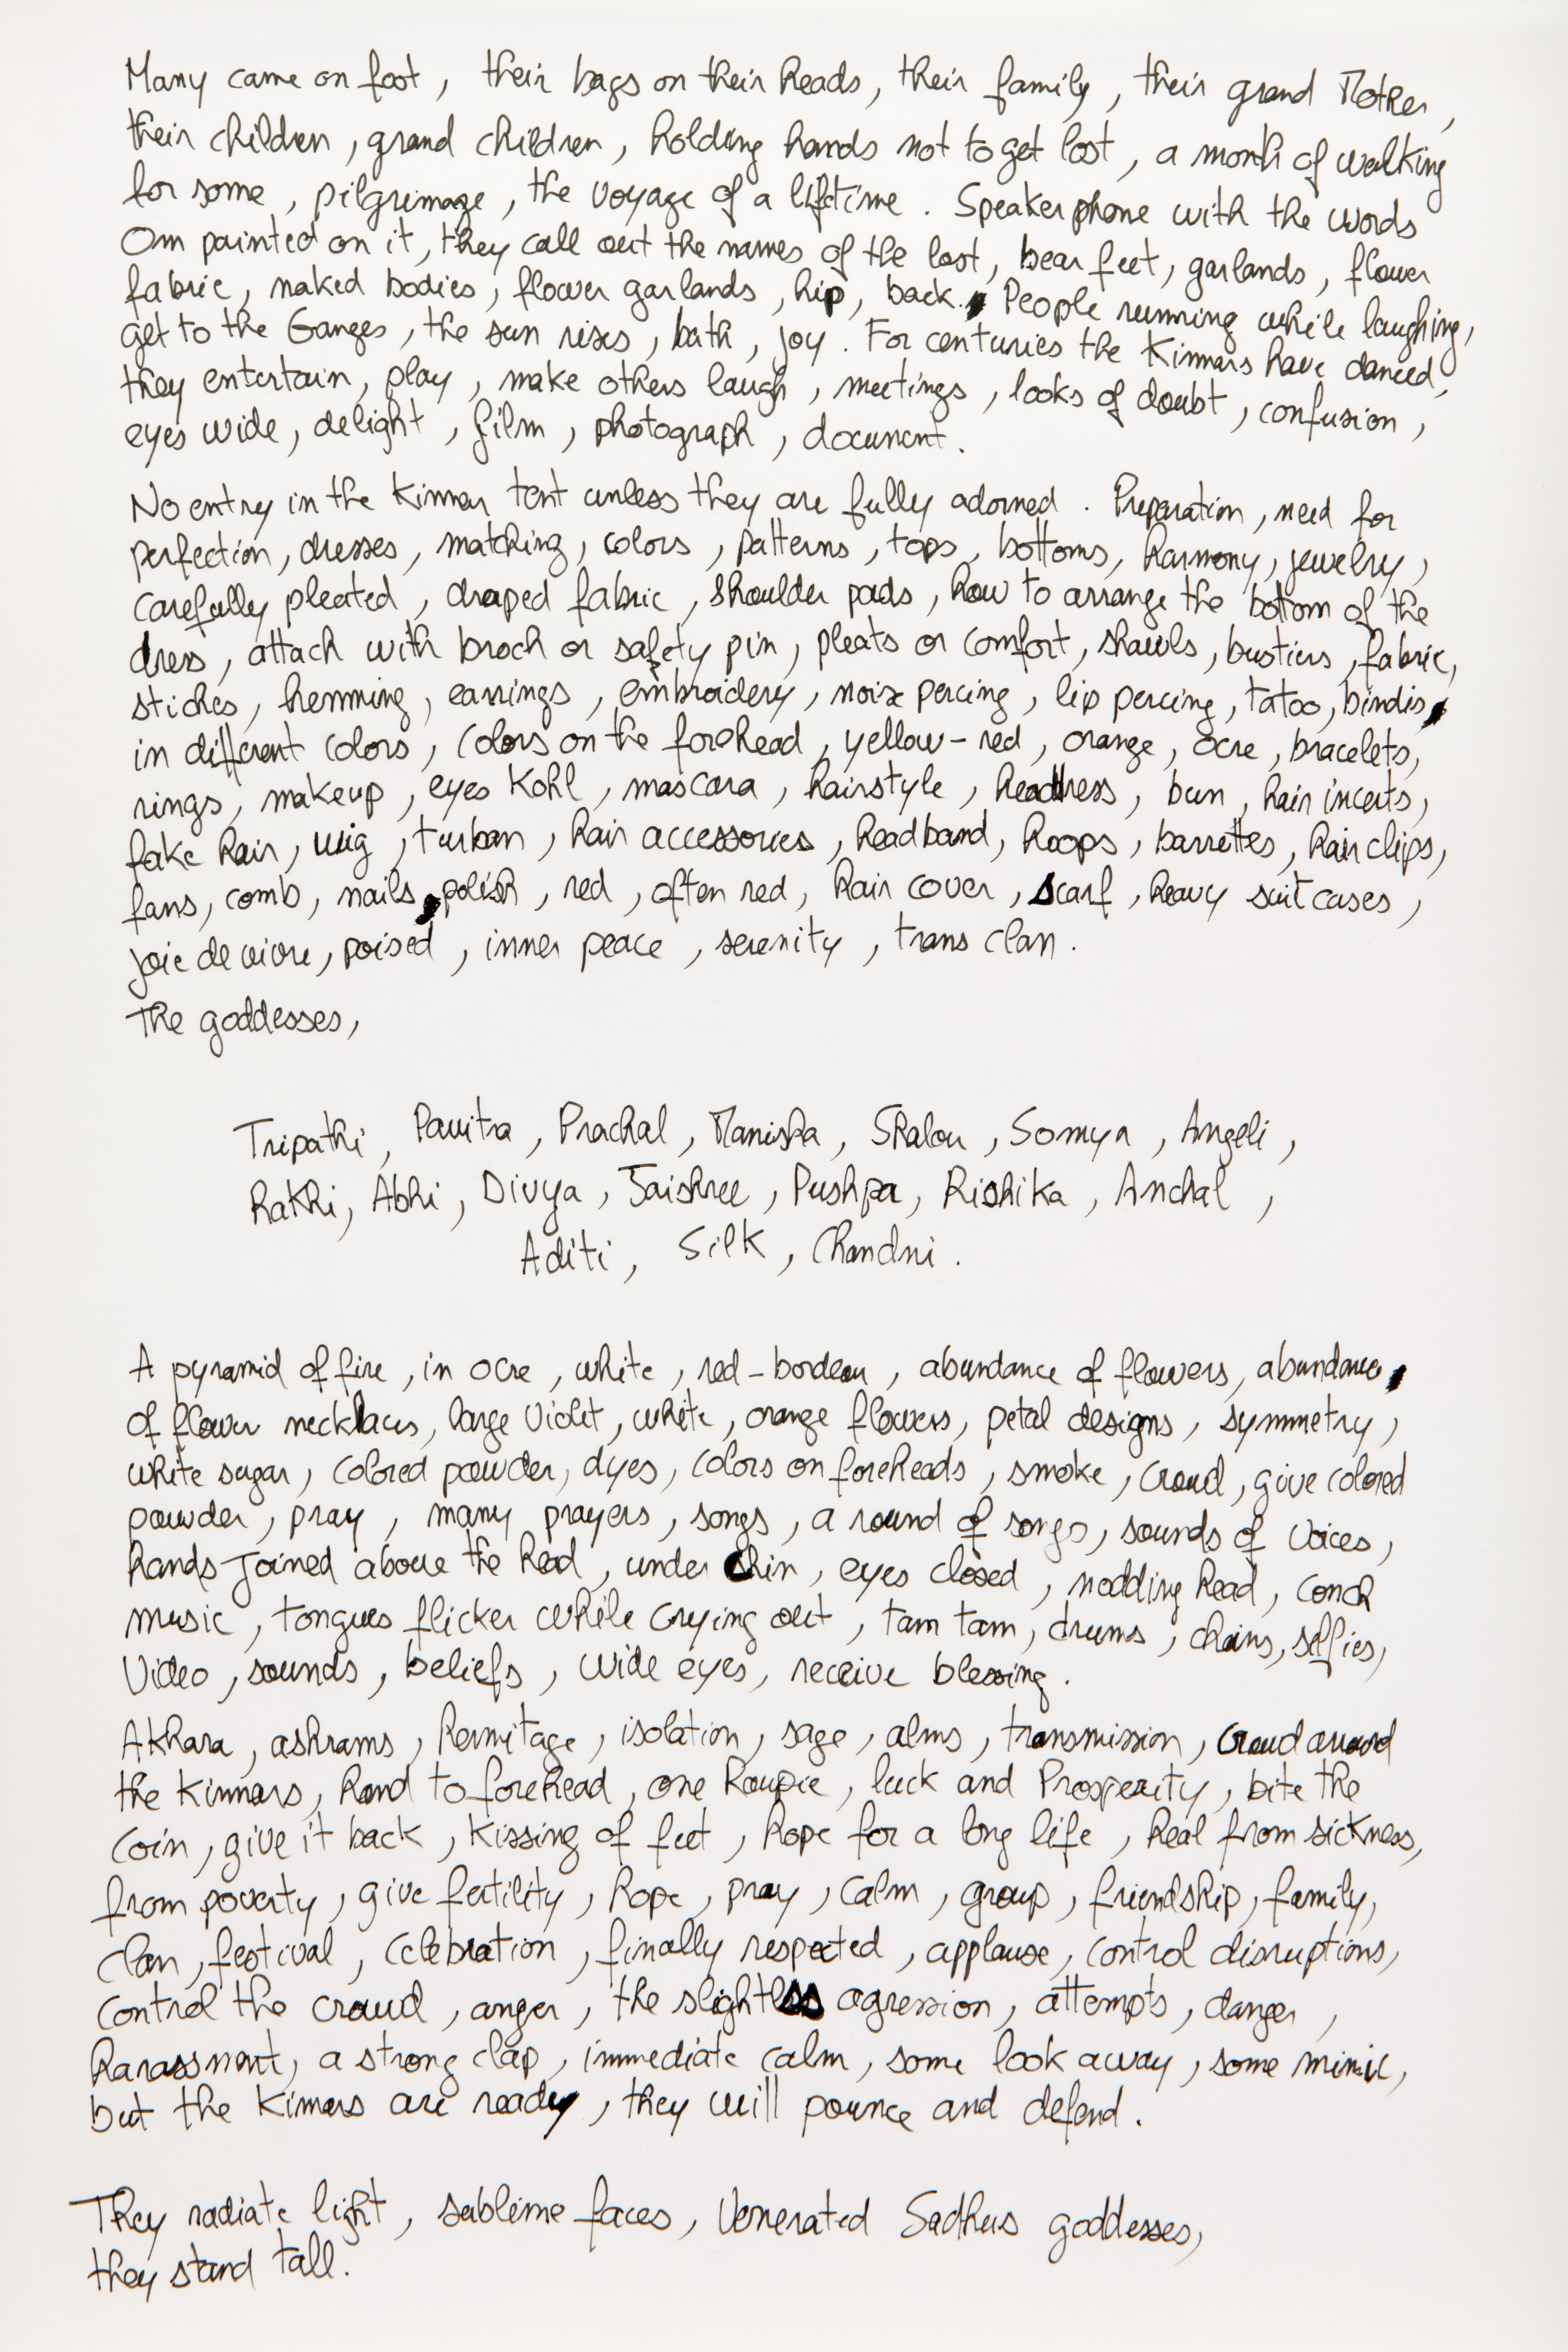 Many came on foot, their bags on their heads, their family, their grand Mother,
their children, grand children, holding hands not to get lost, a month of walking
for some, pilgrimage, the voyage of a lifetime. Speaker phone with the words
Om painted on it, they call out the names of the lost, bear feet, garlands, flower
fabric, naked bodies, flower garlands, hip, back. People running while laughing,
get to the Ganges, the sun rises, bath, joy. For centuries the Kinnars have danced,
they entertain, play, make others laugh, meetings, looks of doubt, confusion,
eyes wide, delight, film, photograph, document.
No entry in the Kinnar tent unless they are fully adorned. Preparation, need for
perfection, dresses, matching, colors, patterns, tops, bottoms, harmony, jewelry,
carefully pleated, draped fabric, shoulder pads, how to arrange the bottom of the
dress, attach with broch or safety pin, pleats or comfort, shawls, bustiers, fabric,
stiches, hemming, earrings, embroidery, noise percing, lip percing, tatoo, bindis,
in different colors, colors on the forehead, yellow-red, orange, ocre, bracelets,
rings, makeup, eyes Kohl, mascara, hairstyle, headdress, bun, hair incerts,
fake hair, wig, turban, hair accessories, headband, hoops, barrettes, hair clips,
fans, comb, nails, polish, red, often red, hair cover, scarf, heavy suitcases,
joie de vivre, poised, inner peace, serenity, trans clan.
The goddesses,
Tripathi, Pavitra, Prachal, Manisha, Shalou, Somya, Angeli,
Rakhi, Abhi, Divya, Jaishree, Pushpa, Rishika, Anchal,
Aditi, Silk, Chandni.
A pyramid of fire, in ocre, white, red-bordeau, abundance of flowers, abundance,
of flower necklaces, large violet, white, orange flowers, petal designs, symmetry,
white sugar, colored powder, dyes, colors on foreheads, smoke, crowd, give colored
powder, pray, many prayers, songs, a round of songs, sounds of voices,
hands joined above the head, under chin, eyes closed, nodding head, conch
music, tongues flicker while crying out, tam tam, drums, chains, selfies,
video, sounds, beliefs, wide eyes, receive blessing.
Akhara, ashrams, hermitage, isolation, sage, alms, transmission, crowd around
the Kinnars, hand to forehead, one Roupie, luck and Prosperity, bite the
coin, give it back, kissing of feet, hope for a long life, heal from sickness,
from poverty, give fertility, hope, pray, calm, group, friendship, family,
clan, festival, celebration, finally respected, applause, control disruptions,
control the crowd, anger, the slightess agression, attempts, danger,
harassment, a strong clap, immediate calm, some look away, some mimic,
but the Kinnars are ready, they will pounce and defend.
They radiate light, sublime faces, venerated Sadhus goddesses,
they stand tall.